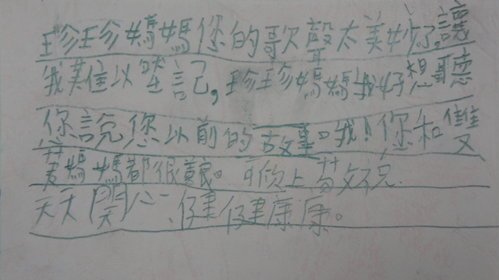 珍珍媽媽您的歌聲太美妙了,讓
我難以忘記,珍珍媽媽我好想聽
您說您以前的故事。哦!你和雙
媽媽都很。可欣上 敬祝
天天開心、健健康康。